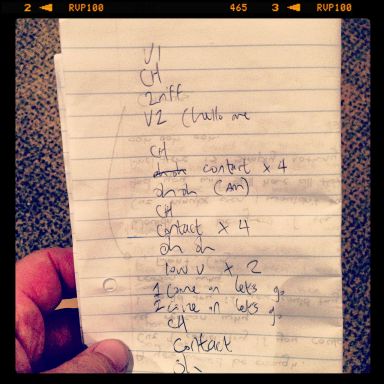 2 RVP100 465 3 RVP100
V1
CH
2 riff
V2 (hello me
CH
oh oh contact x 4
oh oh (Am)
CH
contact x 4
oh oh
low v x 2
1 come on lets go
2 come on lets go
CH
Contact
oh